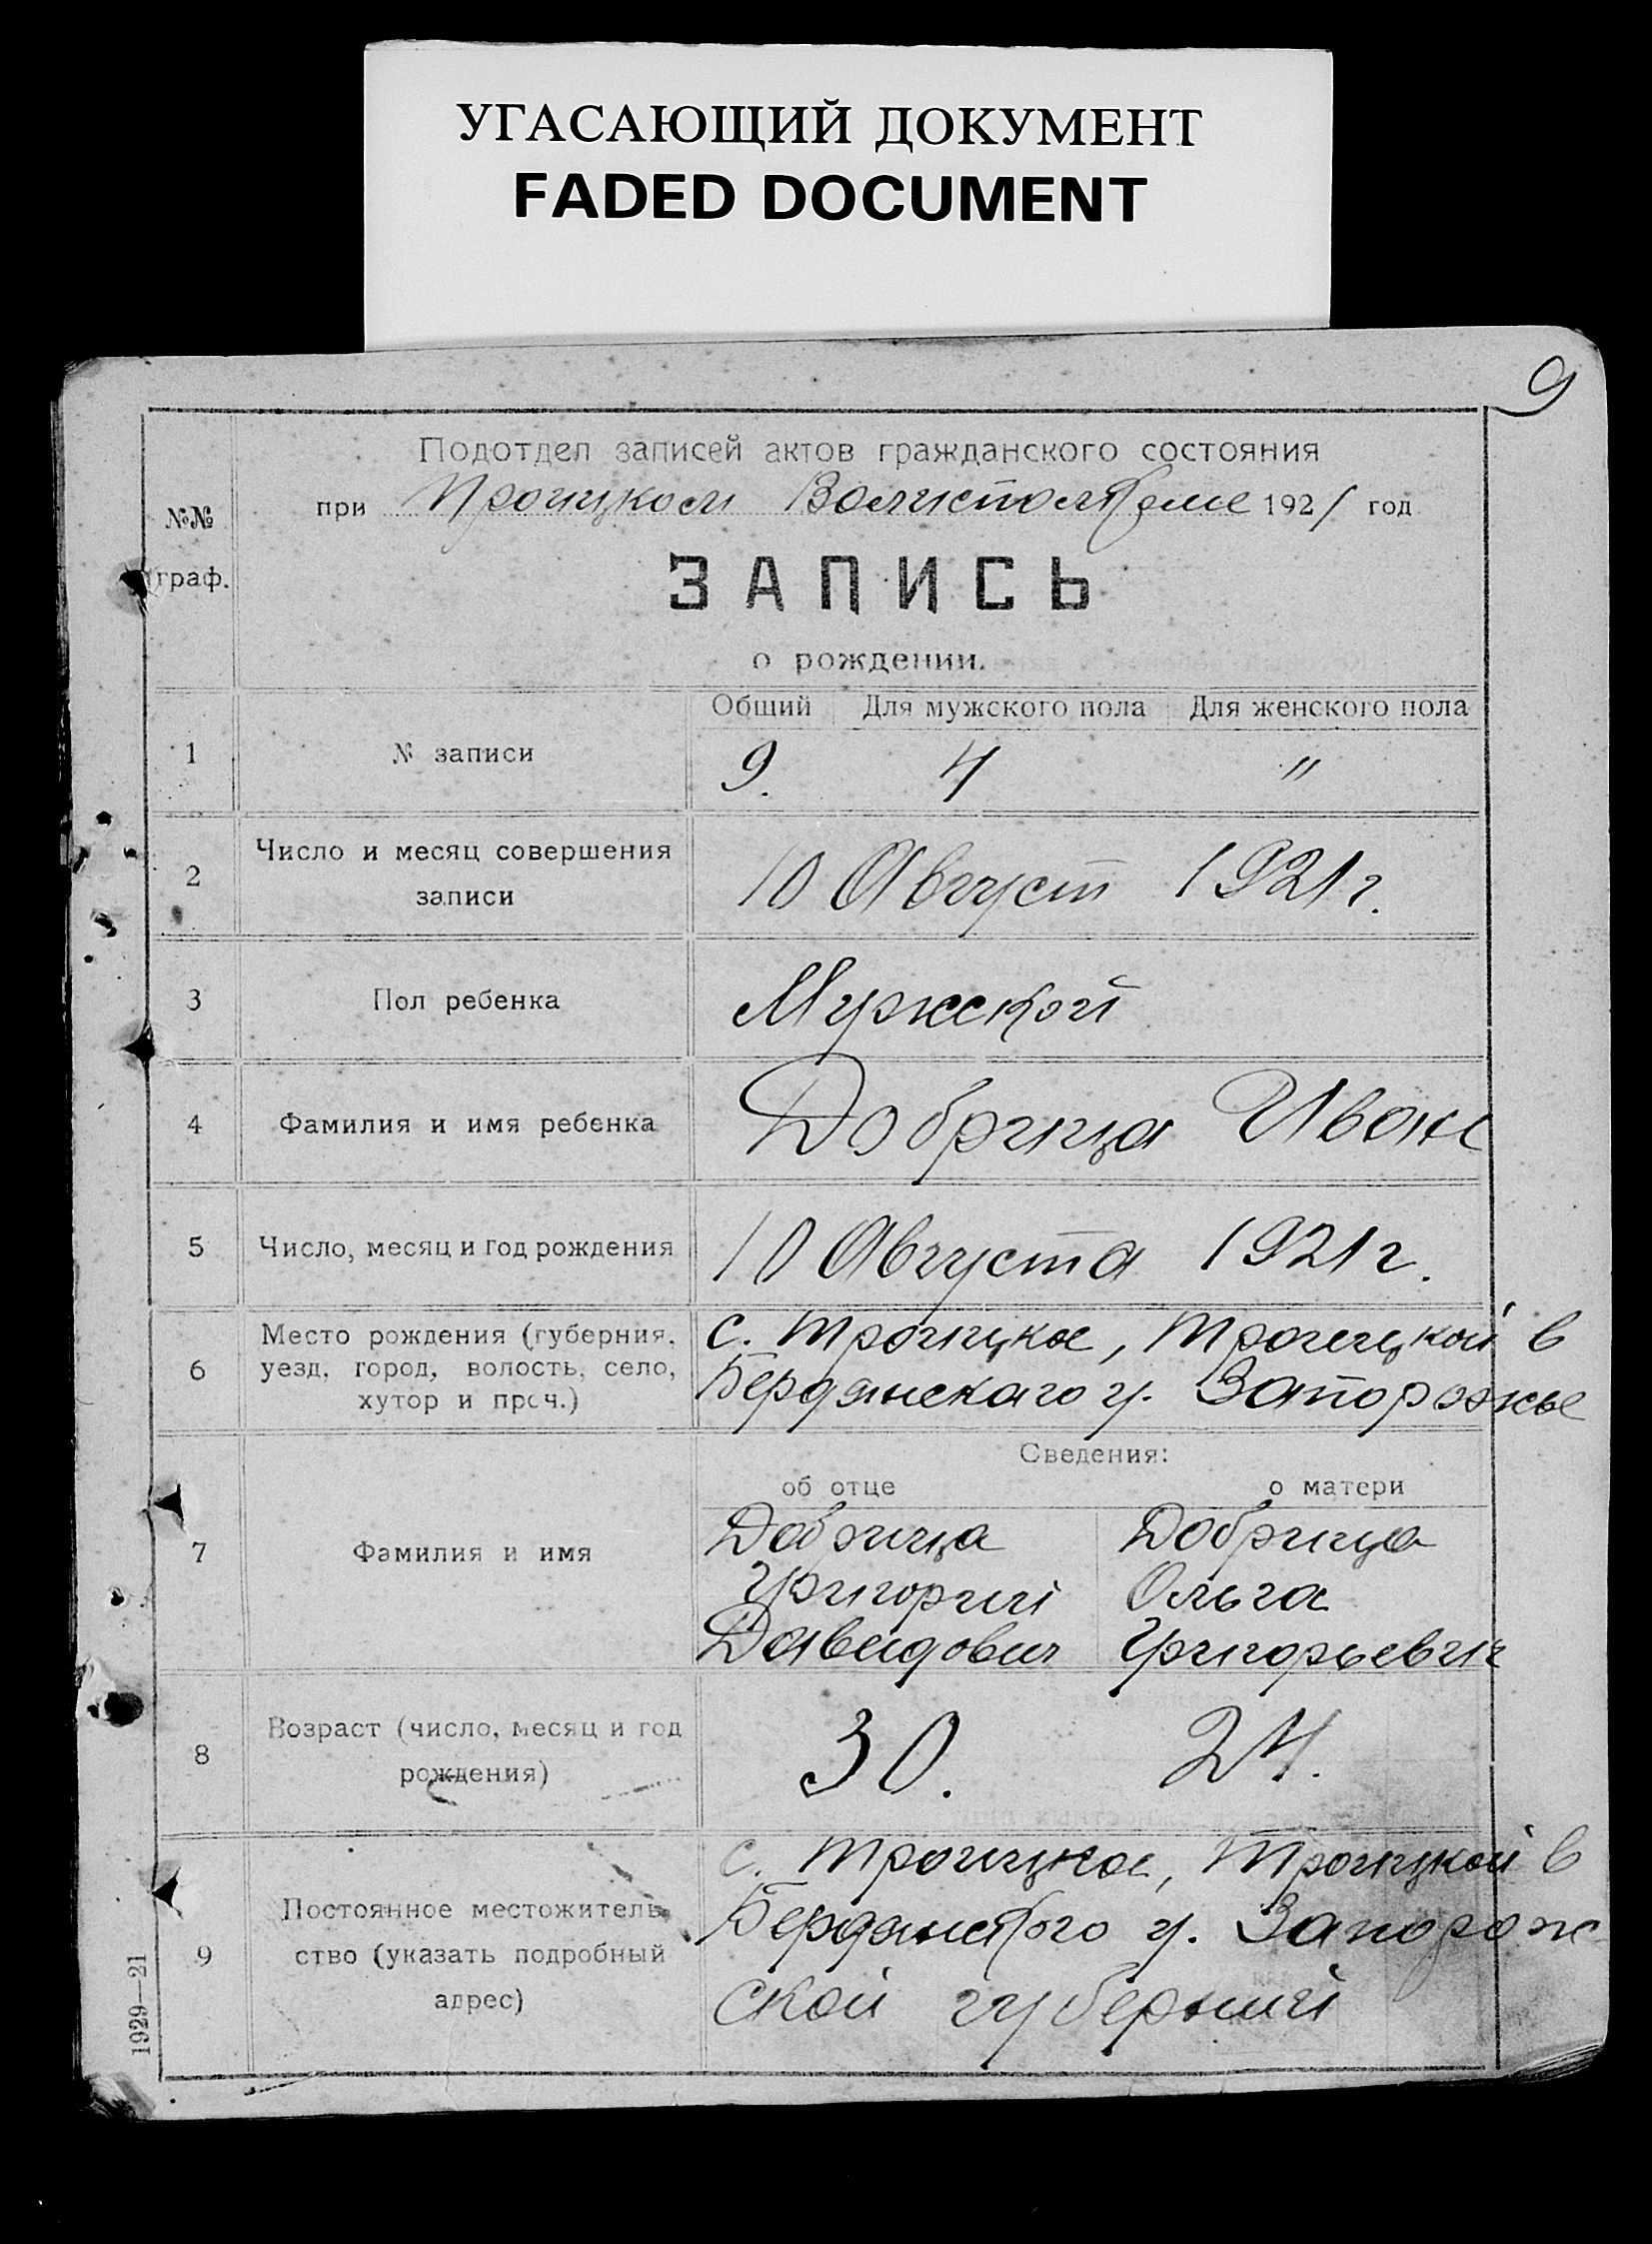 УГАСАЮЩИЙ ДОКУМЕНТ
FADED DOCUMENT
9
№№ граф.
Подотдел записей актов гражданского состояния
при Троицком 1921 год
ЗАПИСЬ
о рождении.
Общий Для мужского пола Для женского пола
1 № записи 9. 4 "
2 Число и месяц совершения
записи
10 Август 1921 г.
3 Пол ребенка Мужской
4 Фамилия и имя ребенка Добрица Иван
5 Число, месяц и год рождения 10 Августа 1921 г.
6 Место рождения (губерния,
уезд, город, волость, село,
хутор и проч.)
с. Троицкое, Троицкой в
Бердянскаго у. Запорожье
Сведения:
об отце о матери
7 Фамилия и имя
Добрица Добрица
Григорий Ольга
Давидович Григорьевна
8 Возраст (число, месяц и год
рождения)
30. 24.
9 Постоянное местожитель-
ство (указать подробный
адрес)
с. Троицкое, Троицкой в
Бердянского у. Запорож
ской губернии
1929—21